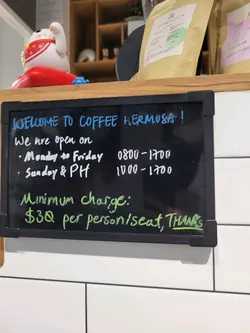 WELCOME TO COFFEE HERMOSA!
We are open on
• Monday to Friday 0800-1700
• Sunday & PH 1000-1700
Minimum charge:
$30 per person/seat, THANKS